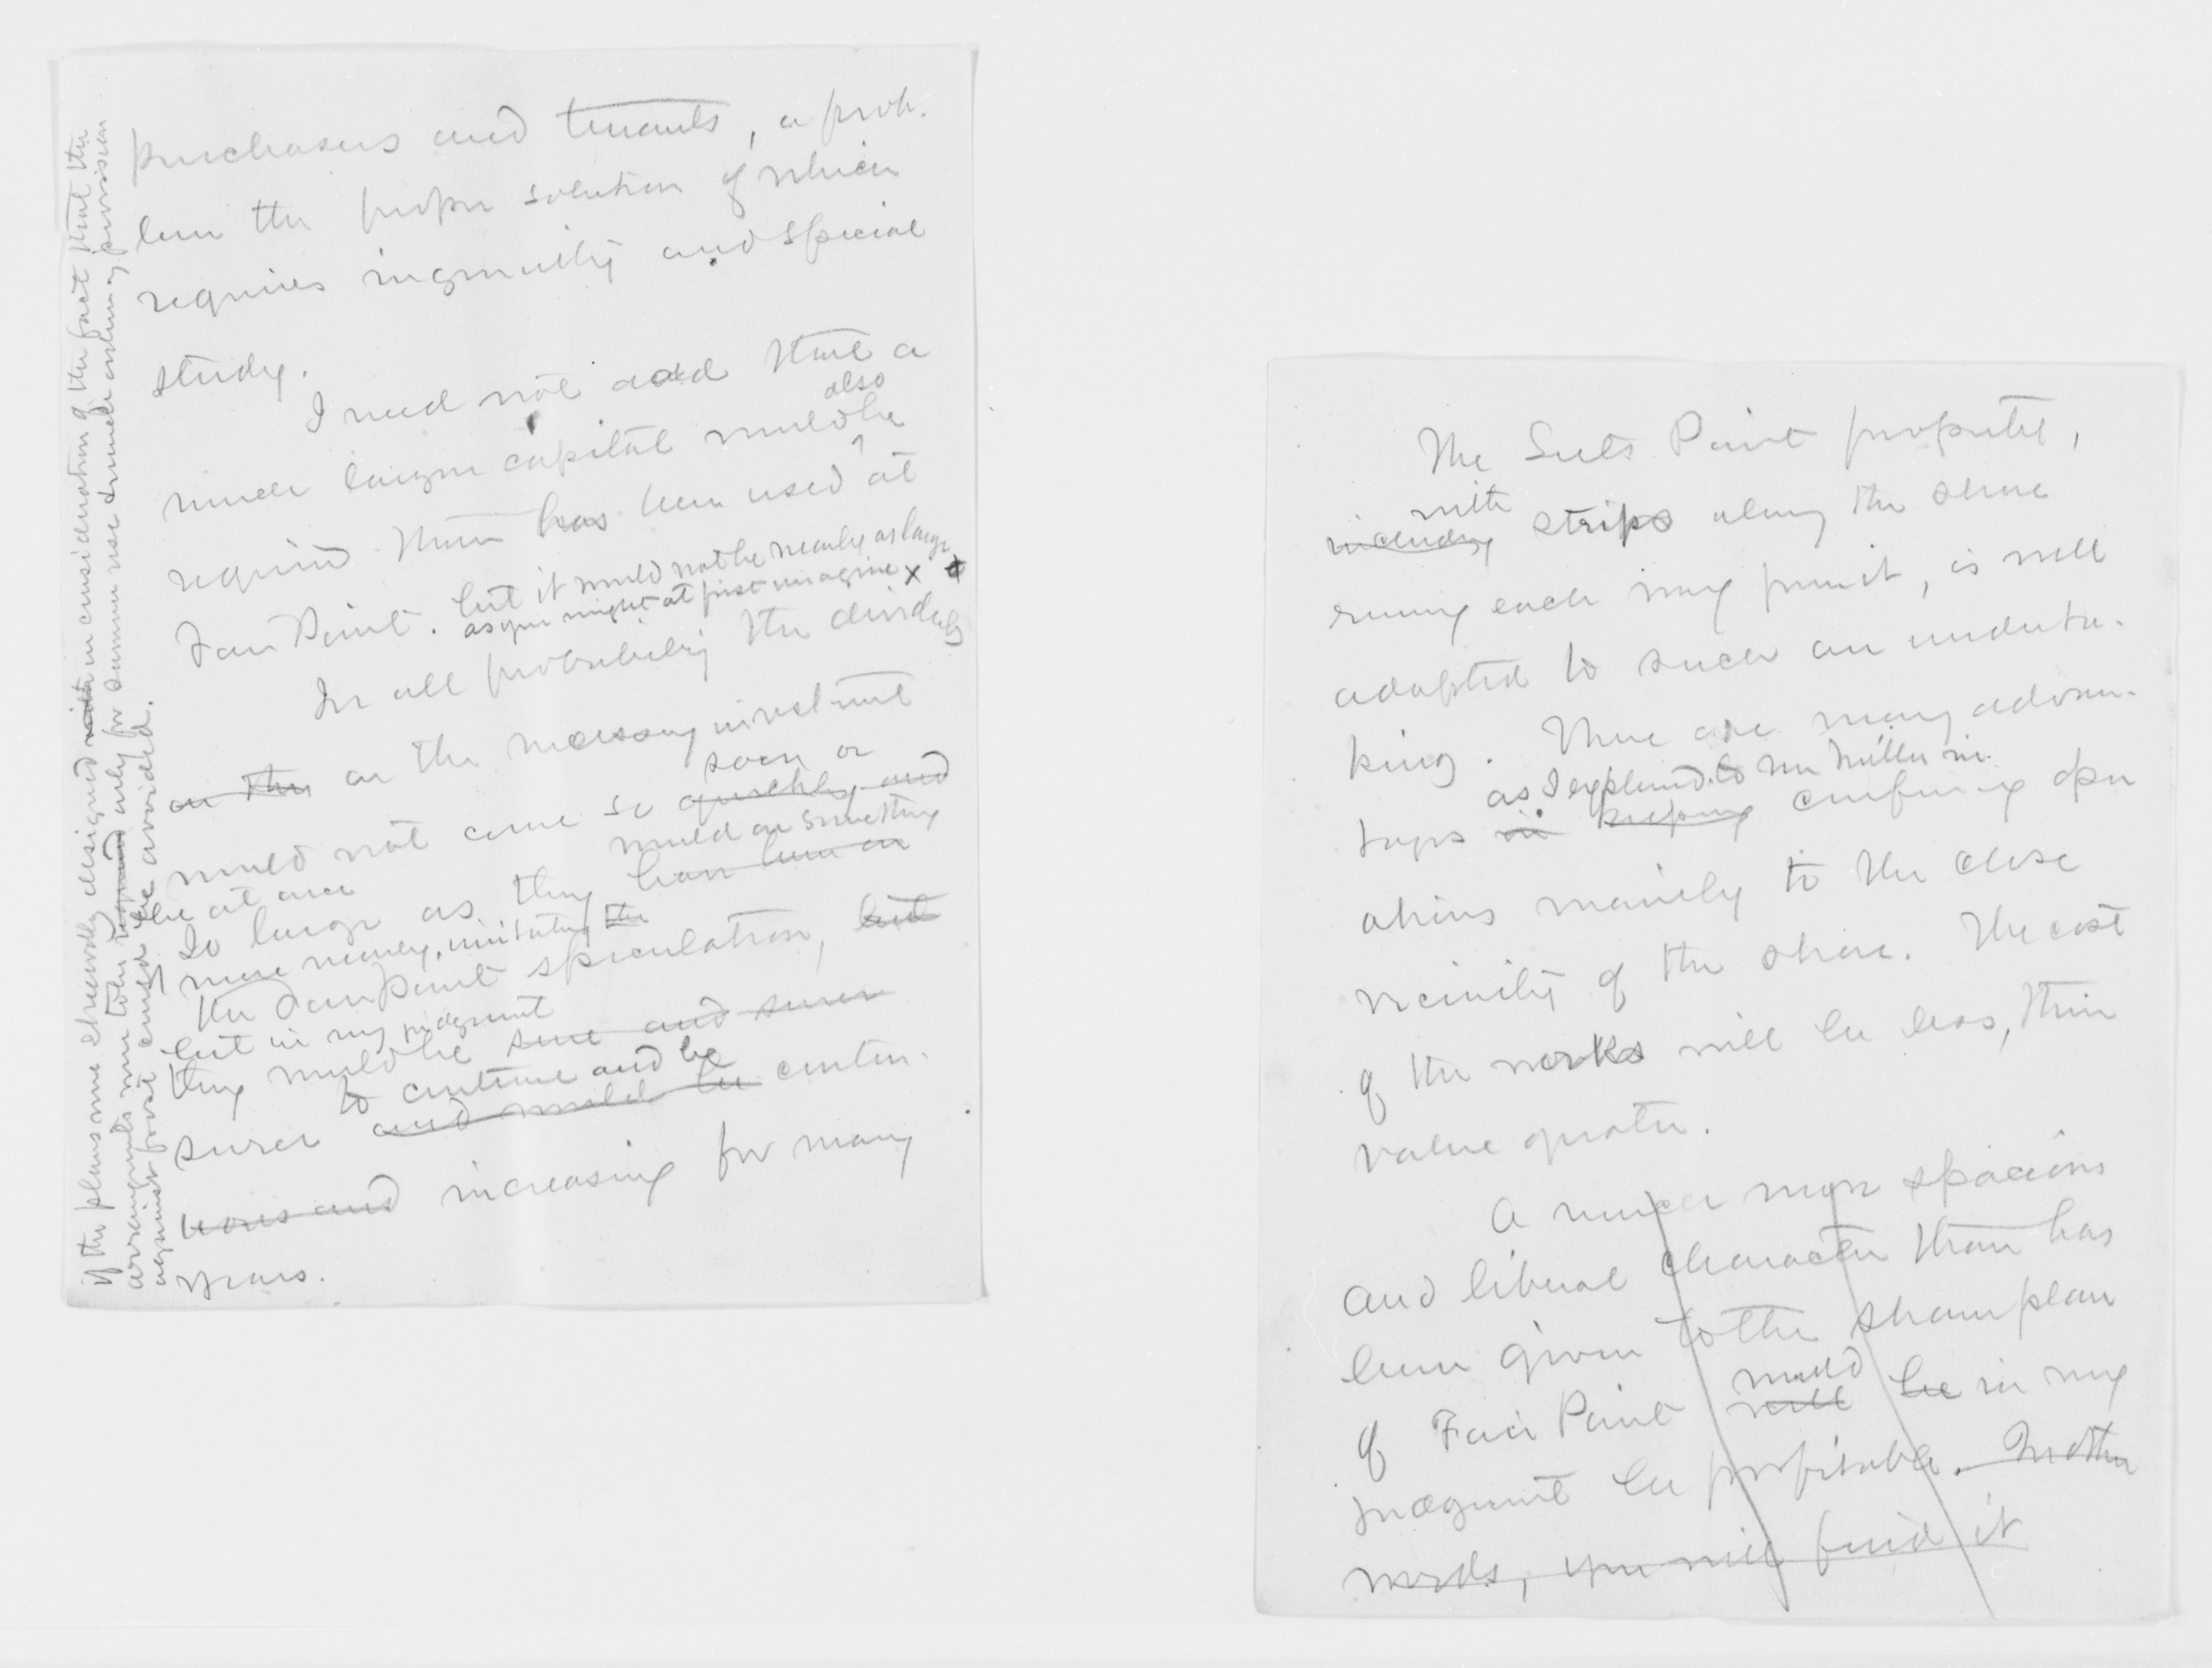 purchasers and tenants, a prob-
lem the proper solution of which
requires ingenuity and special
study.
I need not add that a
also
much larger capital would be
required than has been used at
Fair Point. but it would not be nearly as large
as you might at first imagine x
In all probability the dividends
on the on the necessary investment
soon or
would not come so quickly, and
would on something
be at once
so large as they have been on
more money, imitating the
the Fair Point speculation, but
but in my judgment
they would be sure and surer
to continue and be
surer and would be contin-
uous and increasing for many
years.
if the plans were shrewdly designed with in consideration of the fact that the
arrangements were to be required only for summer use & much ordinary provision
against frost could be avoided.
The Sults Point property,
with
including strips along the shore
running each way from it, is well
adapted to such an underta-
king. There are many advan-
as I explained to Mr Miller in
tages in keeping confining oper
ations mainly to the close
vicinity of the shore. The cost
of the works will be less, their
value greater.
A much more spacious
and liberal character than has
been given to the shore plan
would
of Fair Point will be in my
judgment be profitable. In other
words, you will find it